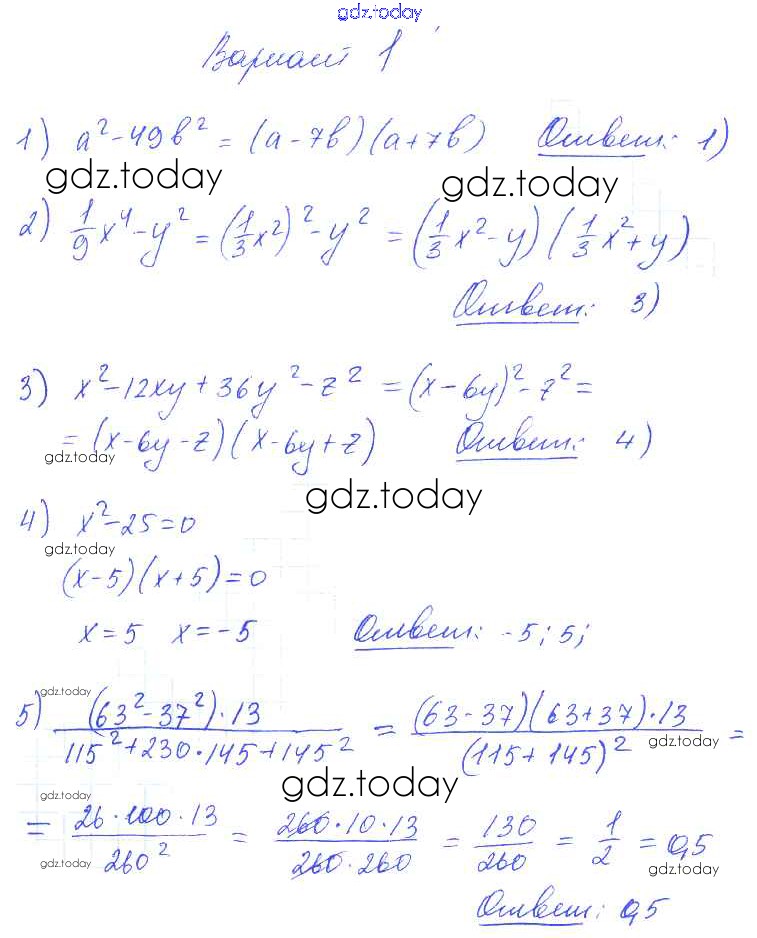 gdz.today
Вариант 1
1) a²-49b² = (a-7b)(a+7b) Ответ: 1)
gdz.today gdz.today
2) 1/9 x⁴-y² = (1/3 x²)²-y² = (1/3 x²-y)(1/3 x²+y)
Ответ: 3)
3) x²-12xy+36y²-z² = (x-6y)²-z² =
= (x-6y-z)(x-6y+z) Ответ: 4)
gdz.today
gdz.today
4) x²-25=0
gdz.today
(x-5)(x+5)=0
x=5 x=-5 Ответ: -5; 5;
gdz.today
5) (63²-37²)·13 / 115²+230·145+145² = (63-37)(63+37)·13 / (115+145)² =
gdz.today
gdz.today
gdz.today
= 26·100·13 / 260² = 260·10·13 / 260·260 = 130/260 = 1/2 = 0,5
gdz.today gdz.today
Ответ: 0,5